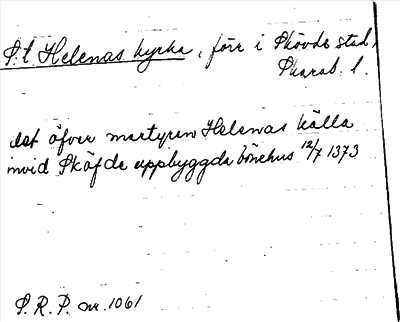 S:t Helenas kyrka, förr i Skövde stad,
Skarab. l.
det öfver martyren Helenas källa
invid Sköfde uppbyggda bönehus 12/7 1373
S.R.P. nr. 1061